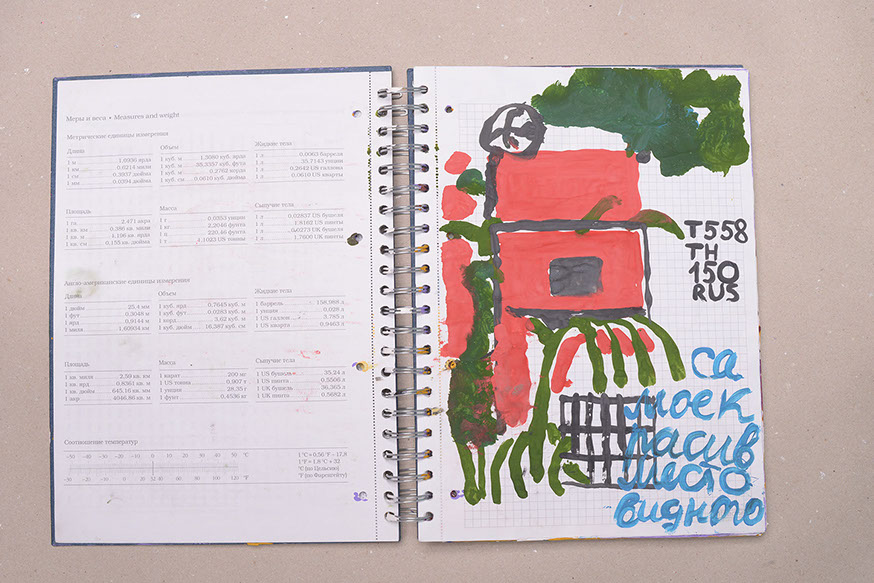 Меры и веса • Measures and weight
Метрические единицы измерения
Длина Объем Жидкие тела
1 м 1,0996 ярда 1 куб. м 1,3080 куб. ярда 1 л 0,0063 барреля
1 км 0,6214 мили 1 куб. м 35,3357 куб. фута 1 л 35,2143 унции
1 см 0,3937 дюйма 1 куб. м 0,2782 корда 1 л 0,2642 US галлона
1 мм 0,0394 дюйма 1 куб. см 0,0610 куб. дюйма 1 л
Площадь Масса Сыпучие тела
1 га 2,471 акра 1 г 0,0353 унции 1 л 0,02837 US бушеля
1 кв. км 0,386 кв. мили 1 кг 2,2046 фунта 1 л 1,8162 US пинты
1 кв. м 1,196 кв. ярда 1 ц 220,46 фунта 1 л 0,0273 UK бушеля
1 кв. см 0,155 кв. дюйма 1 т 1,1023 US тонны 1 л 1,7600 UK пинты
Англо-американские единицы измерения
Длина Объем Жидкие тела
1 дюйм 25,4 мм 1 куб. ярд 0,7645 куб. м 1 баррель 158,988 л
1 фут 0,3048 м 1 куб. фут 0,0283 куб. м 1 унция 0,028 л
1 ярд 0,9144 м 1 корд 3,62 куб. м 1 US галлон 3,785 л
1 миля 1,60934 км 1 куб. дюйм 16,387 куб. см 1 US кварта 0,9463 л
Площадь Масса Сыпучие тела
1 кв. миля 2,59 кв. км 1 карат 200 мг 1 US бушель 35,24 л
1 кв. ярд 0,8361 кв. м 1 US тонна 0,907 т 1 US пинта 0,5506 л
1 кв. дюйм 645,16 кв. мм 1 унция 28,35 г 1 UK бушель 36,365 л
1 акр 4046,86 кв. м 1 фунт 0,4536 кг 1 UK пинта 0,5682 л
Соотношение температур
-50 -40 -30 -20 -10 0 10 20 30 40 50 °C
-60 -40 -20 0 20 32 40 60 80 100 120 °F
1 °C = 0,56 °F - 17,8
1 °F = 1,8 °C + 32
°C (по Цельсию)
°F (по Фаренгейту)
Т558
ТН
150
RUS
са
моек
расив
место
видного